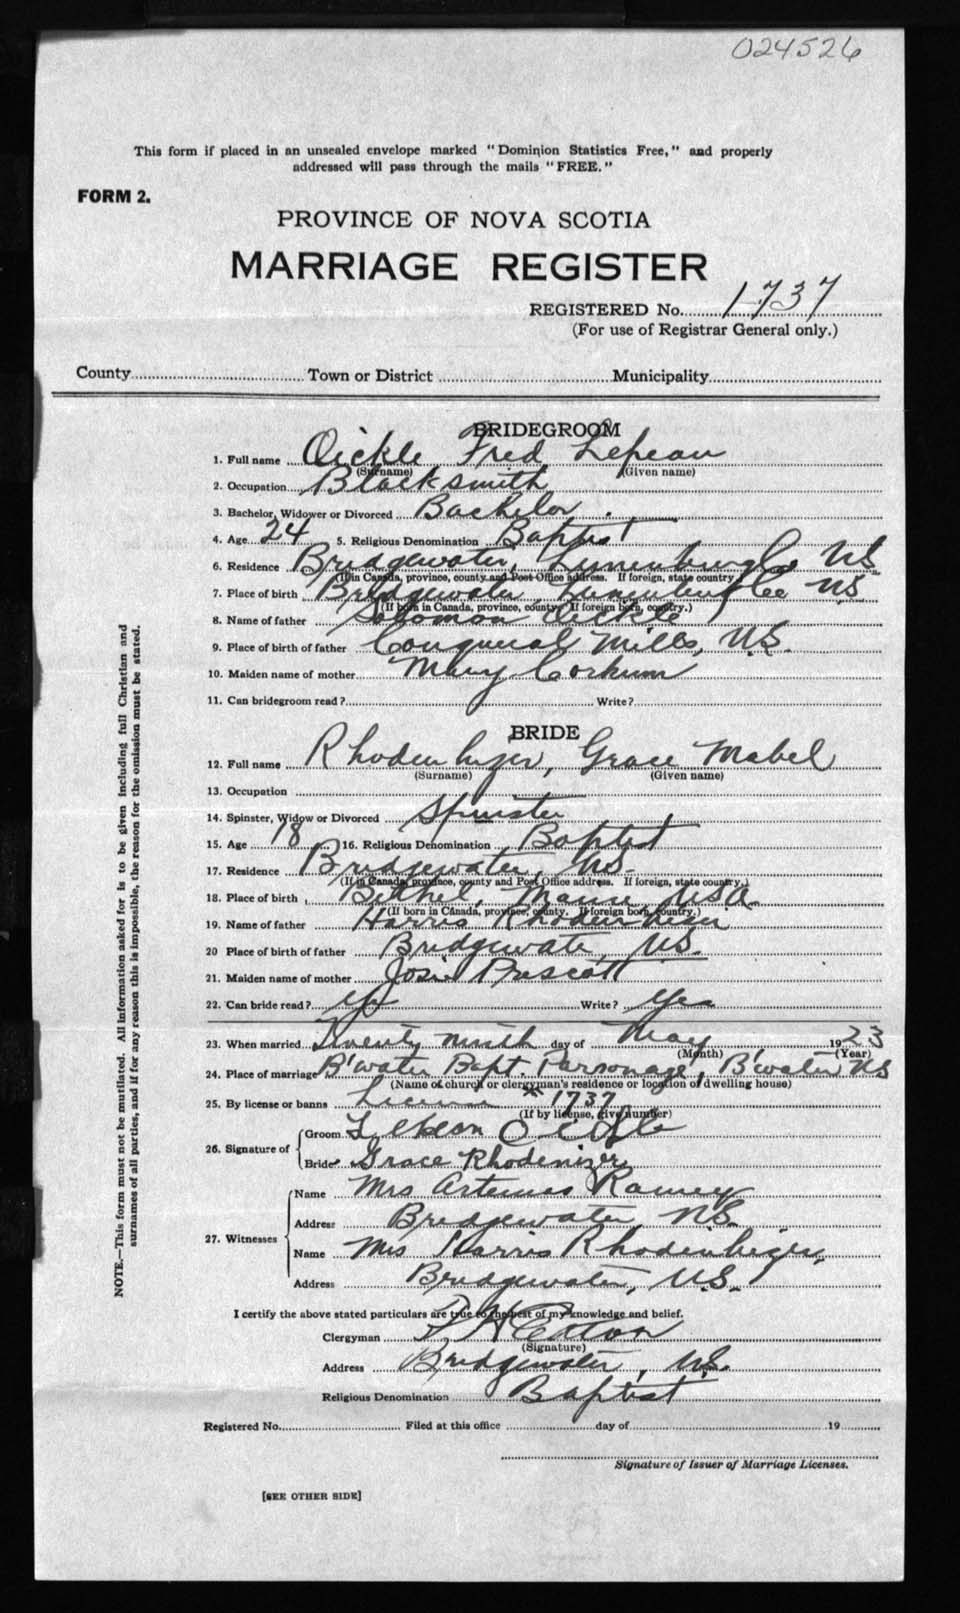 024526
This form if placed in an unsealed envelope marked "Dominion Statistics Free," and properly
addressed will pass through the mails "FREE."
FORM 2.
PROVINCE OF NOVA SCOTIA
MARRIAGE REGISTER
REGISTERED No. 1737
(For use of Registrar General only.)
County Town or District Municipality
BRIDEGROOM
1. Full name Oickle Fred
(Surname) (Given name)
2. Occupation Blacksmith
3. Bachelor, Widower or Divorced Bachelor.
4. Age 24 5. Religious Denomination Baptist
6. Residence Bridgewater, Lunenburg Co NS
(If in Canada, province, county and Post Office address. If foreign, state country.)
7. Place of birth Bridgewater, Lunenburg Co NS
(If born in Canada, province, county. If foreign born, country.)
8. Name of father Solomon Oickle
9. Place of birth of father Conquerall Mills, N.S.
10. Maiden name of mother Mary Corkum
11. Can bridegroom read? Write?
BRIDE
12. Full name Rhodenhizer, Grace Mabel
(Surname) (Given name)
13. Occupation
14. Spinster, Widow or Divorced Spinster
15. Age 18 16. Religious Denomination Baptist
17. Residence Bridgewater, NS.
(If in Canada, province, county and Post Office address. If foreign, state country.)
18. Place of birth Bethel, Maine, USA
(If born in Canada, province, county. If foreign born, country.)
19. Name of father Harris Rhodenhizer
20 Place of birth of father Bridgewater, N.S.
21. Maiden name of mother Josie Prescott
22. Can bride read? Yes Write? Yes
23. When married Twenty ninth day of May 1923
(Month) (Year)
24. Place of marriage B'water Bapt. Parsonage, B'water NS
(Name of church or clergyman's residence or location of dwelling house)
25. By license or banns License # 1737
(If by license, give number)
26. Signature of Groom Oickle
Bride Grace Rhodenizer
27. Witnesses Name Mrs Artemas Ramey
Address Bridgewater, N.S.
Name Mrs Harris Rhodenhizer,
Address Bridgewater, N.S.
I certify the above stated particulars are true to the best of my knowledge and belief.
Clergyman H Eaton
(Signature)
Address Bridgewater, N.S.
Religious Denomination Baptist
Registered No. Filed at this office day of 19
Signature of Issuer of Marriage Licenses.
[SEE OTHER SIDE]
NOTE.—This form must not be mutilated. All information asked for is to be given including full Christian and
surnames of all parties, and if for any reason this is impossible, the reason for the omission must be stated.